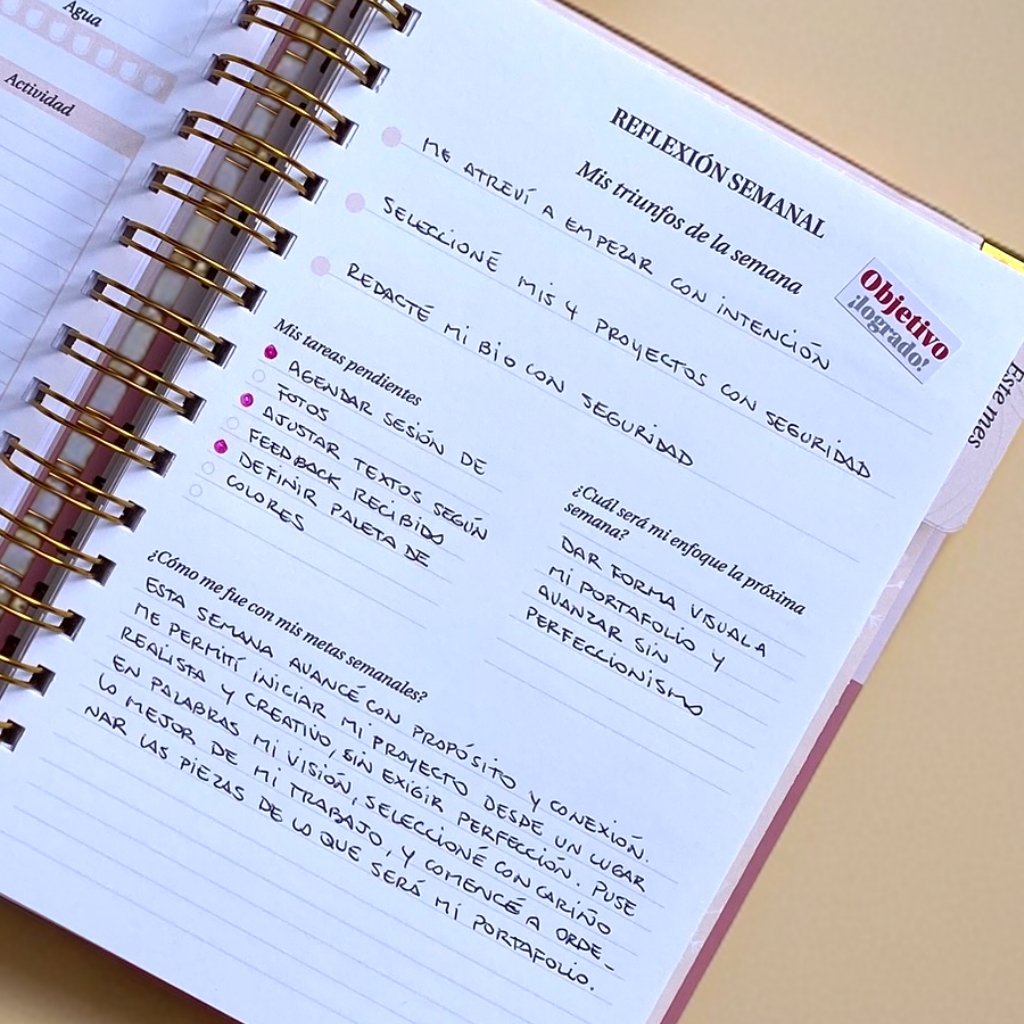 Agua
Actividad
REFLEXIÓN SEMANAL
Mis triunfos de la semana
ME ATREVÍ A EMPEZAR CON INTENCIÓN
SELECCIONÉ MIS 4 PROYECTOS CON SEGURIDAD
REDACTÉ MI BIO CON SEGURIDAD
Objetivo
¡logrado!
Este mes
Mis tareas pendientes
AGENDAR SESIÓN DE
FOTOS
AJUSTAR TEXTOS SEGÚN
FEEDBACK RECIBIDO
DEFINIR PALETA DE
COLORES
¿Cuál será mi enfoque la próxima
semana?
DAR FORMA VISUAL A
MI PORTAFOLIO Y
AVANZAR SIN
PERFECCIONISMO
¿Cómo me fue con mis metas semanales?
ESTA SEMANA AVANCÉ CON PROPÓSITO Y CONEXIÓN.
ME PERMITÍ INICIAR MI PROYECTO DESDE UN LUGAR
REALISTA Y CREATIVO, SIN EXIGIR PERFECCIÓN. PUSE
EN PALABRAS MI VISIÓN, SELECCIONÉ CON CARIÑO
LO MEJOR DE MI TRABAJO, Y COMENCÉ A ORDE-
NAR LAS PIEZAS DE LO QUE SERÁ MI PORTAFOLIO.